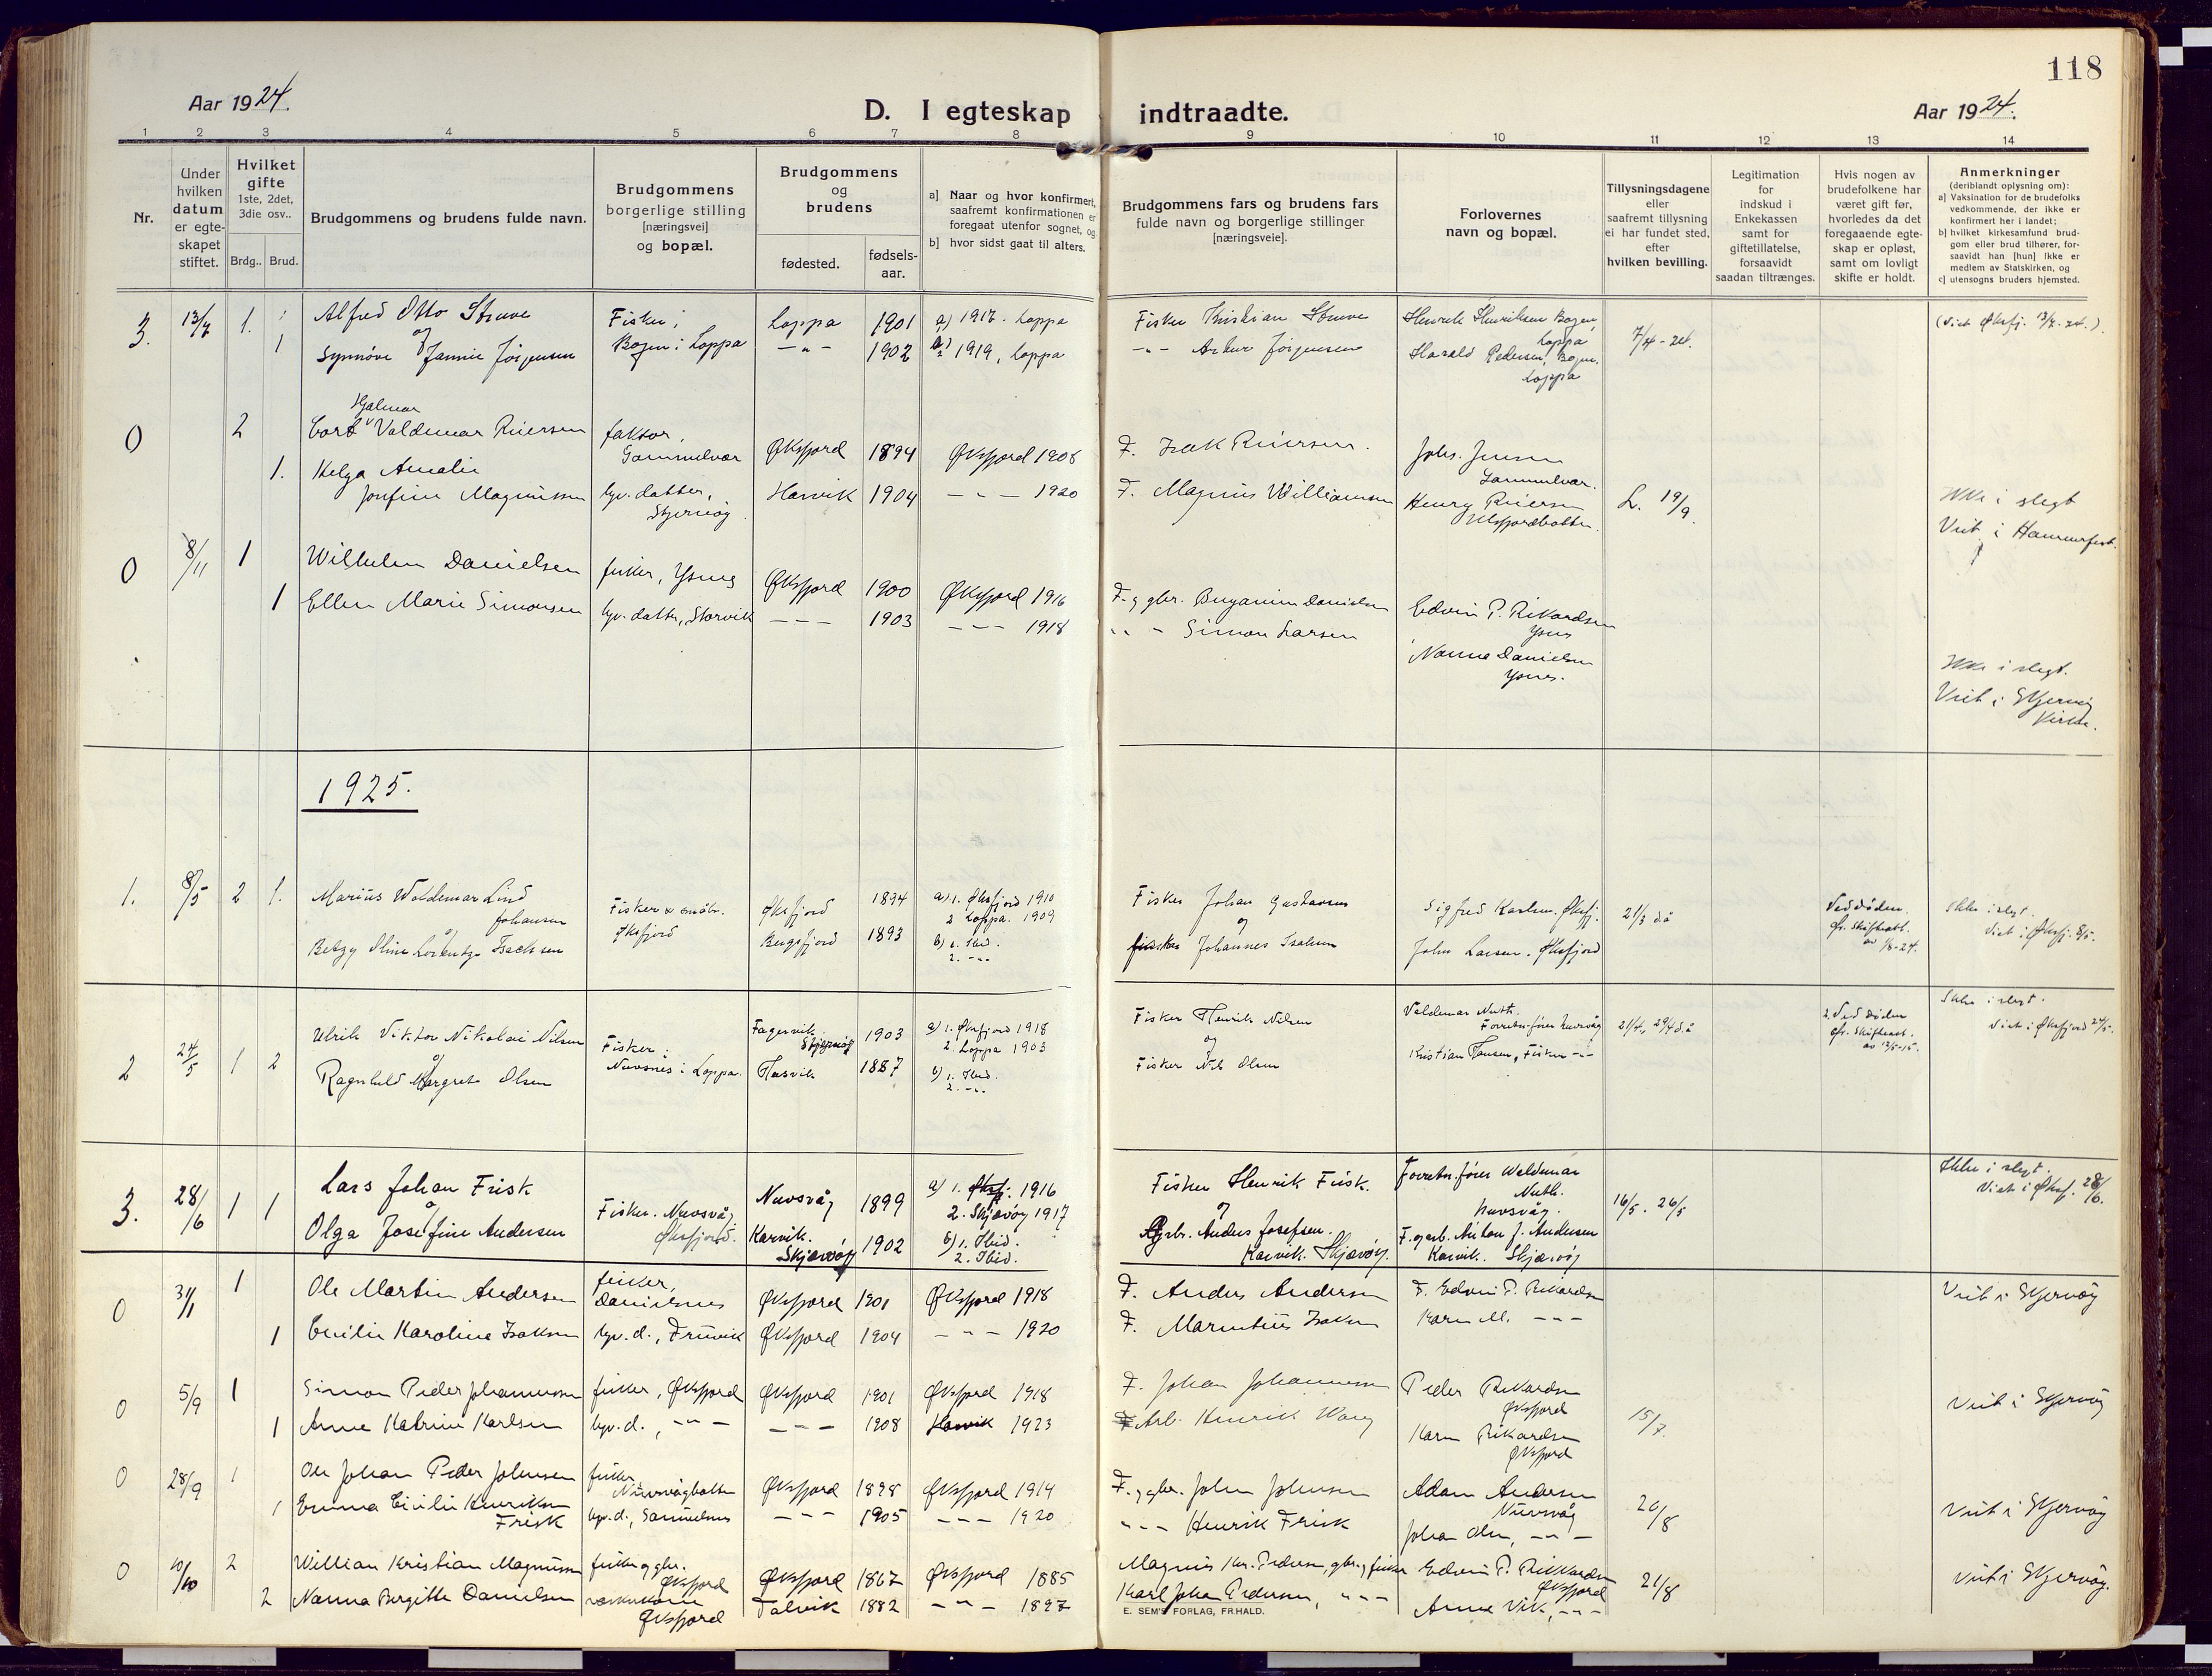 118
Aar 1924.
D. I egteskap indtraadte.
Aar 1924.
1 2 3 4 5 6 7 8 9 10 11 12 13 14
Nr.
Under hvilken datum er egte-skapet stiftet.
Hvilket gifte
1ste, 2det, 3die osv..
Brdg.. Brud.
Brudgommens og brudens fulde navn.
Brudgommens borgerlige stilling [næringsvei] og bopæl.
Brudgommens og brudens
fødested.
fødsels-aar.
a] Naar og hvor konfirmert, saafremt konfirmationen er foregaat utenfor sognet, og
b] hvor sidst gaat til alters.
Brudgommens fars og brudens fars fulde navn og borgerlige stillinger [næringsveie].
Forlovernes navn og bopæl.
Tillysningsdagene eller saafremt tillysning ei har fundet sted, efter hvilken bevilling.
Legitimation for indskud i Enkekassen samt for giftetillatelse, forsaavidt saadan tiltrænges.
Hvis nogen av brudefolkene har været gift før, hvorledes da det foregaaende egte-skap er opløst, samt om lovligt skifte er holdt.
Anmerkninger
(deriblandt oplysning om):
a] Vaksination for de brudefolks vedkommende, der ikke er konfirmert her i landet;
b] hvilket kirkesamfund brud-gom eller brud tilhører, for-saavidt han [hun] ikke er medlem av Statskirken, og
c] utensogns bruders hjemsted.
3. 13/4 1. Alfred Otto Struve Fisker i Loppa 1901 a) 1917. Loppa Fisker Kristian Struve Henrik Henriksen Bogen, Loppa 7/4 - 24. (Viet Øksfj. 13/4. 24.)
og
1 Synnøve Jannie Jørgensen Bogen i Loppa -"- 1902 b) 1919, Loppa -"- Artur Jørgensen Harald Pedersen, Bogen. Loppa
0 2 Hjalmar
Cort Valdemar Riiersen faktor, Gammelvær Øksfjord 1894 Øksfjord 1908 F. Isak Riiersen. Johs. Jensen Gammelvær.
1. Helga Amalie Josefine Magnussen tyv. datter, Stjernøy Hasvik 1904 -"- 1920 F. Magnus Williamsen Henry Riiersen Ulsfjordbotten. L. 19/9. Ikke i slegt
Viet i Hammerfest.
0 8/11 1 Wilhelm Danielsen fisker, Ysnes Øksfjord 1900 Øksfjord 1916 F. og gbr. Benjamin Danielsen Edvin P. Rikardsen Ysnes
1 Ellen Marie Simonsen tyv. datter, Storvik -"- 1903 -"- 1918 -"- Simon Larsen Nanna Danielsen Ysnes. Ikke i slegt.
Viet i Skjervøy kirke.
1925.
1. 8/5 2 1. Marius Woldemar Lind Johansen Fisker & småbr. Øksfjord Øksfjord 1894 a) 1. Øksfjord 1910 2 Loppa. 1909 Fisker Johan Gustavsen Sigfred Karlsen. Øksfj. 21/3 då Ved døden. Ikke i slegt.
og Viet i Øksfj. 8/5.
Betzy Oline Lorentze Isachsen Bergsfjord 1893 b) 1. Ibid. 2. -"- fisker Johannes Isaksen John Larsen. Øksfjord
2 24/5 1 2 Ulrik Viktor Nikolai Nilsen Fisker. Fagervik Stjernøy 1903 a) 1. Øksfjord 1918 2. Loppa 1903 Fisker Henrik Nilsen Valdemar Nuth. Forretn.fører Nuvsvåg 2. Ved døden Ikke i slegt.
og Viet i Øksfjord 24/5.
Ragnhild Margrete Olsen Nuvsnes i Loppa. Hasvik 1887 b) 1. Ibid. 2. -"- Fisker Nils Olsen Kristian Hansen, Fisker -"-
3. 28/6 1 1 Lars Johan Frisk Fisker. Nuvsvåg Øksfjord. Nuvsvåg 1899 a) 1. Øksfj. 1916 2. Skjævøy 1917 Fisker Henrik Frisk. Forretn.fører Waldemar Nuth. Nuvsvåg. 16/5. 26/5 Ikke i slegt.
og Viet i Øksf. 28/6.
Olga Josefine Andersen Karvik. Skjævøy 1902 b) 1. Ibid. 2. Ibid. Gbr. Anders Josefsen. Karvik. Skjævøy. F. og gb. Anton J. Andersen Karvik. Skjævøy
0 31/1 1 Ole Martin Andersen fisker, Danielsnes Øksfjord 1901 Øksfjord 1918 F. Anders Andersen F. Edvin P. Rikardsen Viet i Skjervøy
1 Cecilie Karoline Isaksen tyv. d., Øksfjord 1904 -"- 1920 F. Isaksen Karen M. -"-
0 5/9 1 Simon Peder Johannessen fisker, Øksfjord Øksfjord 1901 Øksfjord 1918 F. Johan Johannessen Peder Rikardsen Øksfjord Viet i Skjervøy
1 Anna Katrine Karlsen tyv. d., -"- -"- 1908 Hasvik 1923 Arb. Henrik Karen Rikardsen Øksfjord 15/7.
0 28/9 1 Ole Johan Peder Johnsen fisker Nuvsvågbotten Øksfjord 1898 Øksfjord 1914 F. og gbr. John Johnsen Adam Andersen Nuvsvåg 20/8 Viet i Skjervøy
1 Emma Cicilie Henriksen Frisk tyv. d., Samuelsnes -"- 1905 -"- 1920 -"- Henrik Frisk Johan Olsen, -"-
0 10/10 2 William Kristian Magnussen fisker og gbr. Øksfjord Øksfjord 1867 Øksfjord 1885 Magnus Kr. Pedersen, gbr. og fisker Edvin P. Rikkardsen Øksfjord 21/8 Viet i Skjervøy.
2 Nanna Bergitte Danielsen Øksfjord Talvik 1882 -"- 1897 Karl Johan Pedersen, -"- Anna Vik, -"-
E. SEM'S FORLAG, FR.HALD.